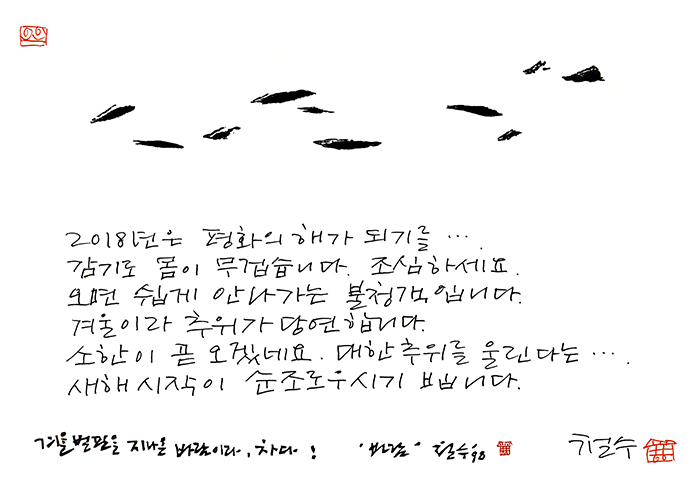 2018년은 평화의 해가 되기를 ….
감기로 몸이 무겁습니다. 조심하세요.
오면 쉽게 안나가는 불청객입니다.
겨울이라 추위가 당연합니다.
소한이 곧 오겠네요. 대한추위를 울린다는 ….
새해 시작이 순조로우시기 빕니다.
겨울벌판을 지나온 바람이다, 차다! "바람" 철수 '98
철수